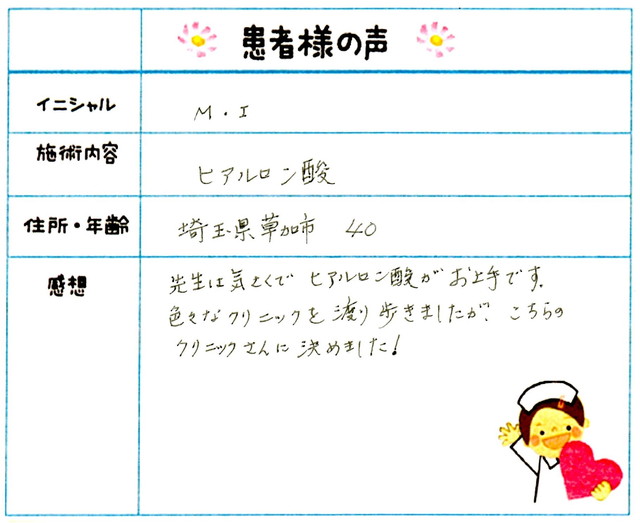 患者様の声
イニシャル M・I
施術内容 ヒアルロン酸
住所・年齢 埼玉県草加市 40
感想 先生は気さくで ヒアルロン酸が お上手です。
色々なクリニックを渡り歩きましたが、こちらの
クリニックさんに決めました!